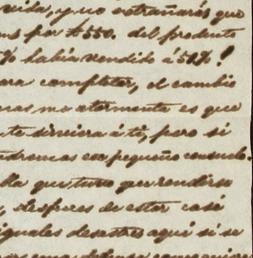 vida, y no estrañarás que
por $550. del producto
% habia vendido á 51%!
para completar, el cambio
mas me atormenta es que
te sirviera á tí, pero si
tendremos ese pequeño consuelo.
que tuvo que rendirse
, despues de estar casi
iguales desastres aqui si se